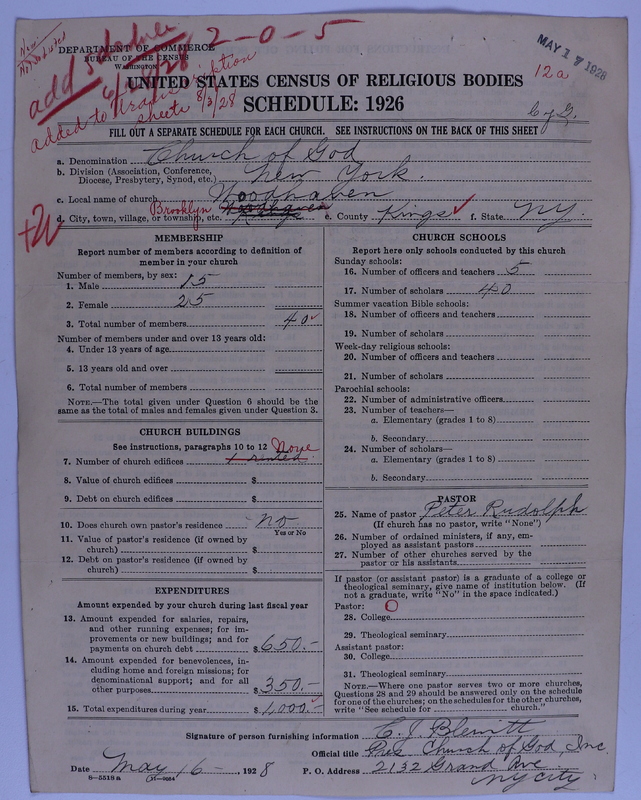 New
2-0-5
DEPARTMENT OF COMMERCE
BUREAU OF THE CENSUS
WASHINGTON
add Schedule
6/28/28
added to transcription
sheets 8/3/28
MAY 17 1928
12a
UNITED STATES CENSUS OF RELIGIOUS BODIES
SCHEDULE: 1926
C of G.
FILL OUT A SEPARATE SCHEDULE FOR EACH CHURCH. SEE INSTRUCTIONS ON THE BACK OF THIS SHEET
a. Denomination Church of God
b. Division (Association, Conference, Diocese, Presbytery, Synod, etc.) New York.
c. Local name of church Woodhaven
d. City, town, village, or township, etc. Brooklyn Woodhaven e. County Kings ✓ f. State N.Y.
MEMBERSHIP
Report number of members according to definition of
member in your church
Number of members, by sex:
1. Male 15
2. Female 25
3. Total number of members 40 ✓
Number of members under and over 13 years old:
4. Under 13 years of age
5. 13 years old and over
6. Total number of members
NOTE.—The total given under Question 6 should be
same as the total of males and females given under Question 3.
CHURCH BUILDINGS
See instructions, paragraphs 10 to 12
None
7. Number of church edifices 1 rented.
8. Value of church edifices $
9. Debt on church edifices $
10. Does church own pastor's residence no
Yes or No
11. Value of pastor's residence (if owned by
church) $
12. Debt on pastor's residence (if owned by
church) $
EXPENDITURES
Amount expended by your church during last fiscal year
13. Amount expended for salaries, repairs,
and other running expenses; for im-
provements or new buildings; and for
payments on church debt $650.-
14. Amount expended for benevolences, in-
cluding home and foreign missions; for
denominational support; and for all
other purposes $350.-
15. Total expenditures during year $1,000.- ✓
CHURCH SCHOOLS
Report here only schools conducted by this church
Sunday schools:
16. Number of officers and teachers 5
17. Number of scholars 40
Summer vacation Bible schools:
18. Number of officers and teachers
19. Number of scholars
Week-day religious schools:
20. Number of officers and teachers
21. Number of scholars
Parochial schools:
22. Number of administrative officers
23. Number of teachers—
a. Elementary (grades 1 to 8)
b. Secondary
24. Number of scholars—
a. Elementary (grades 1 to 8)
b. Secondary
PASTOR
25. Name of pastor Peter Rudolph
(If church has no pastor, write "None")
26. Number of ordained ministers, if any, em-
ployed as assistant pastors
27. Number of other churches served by the
pastor or his assistants
If pastor (or assistant pastor) is a graduate of a college or
theological seminary, give name of institution below. (If
not a graduate, write "No" in the space indicated.)
Pastor: O
28. College
29. Theological seminary
Assistant pastor:
30. College
31. Theological seminary
NOTE.—Where one pastor serves two or more churches,
Questions 28 and 29 should be answered only on the schedule
for one of the churches; on the schedules for the other churches,
write "See schedule for church."
Signature of person furnishing information E. J. Blewitt
Official title Pres Church of God, Inc.
Date May 16 -, 1928 P. O. Address 2132 Grand Ave
N Y City
8-5518a